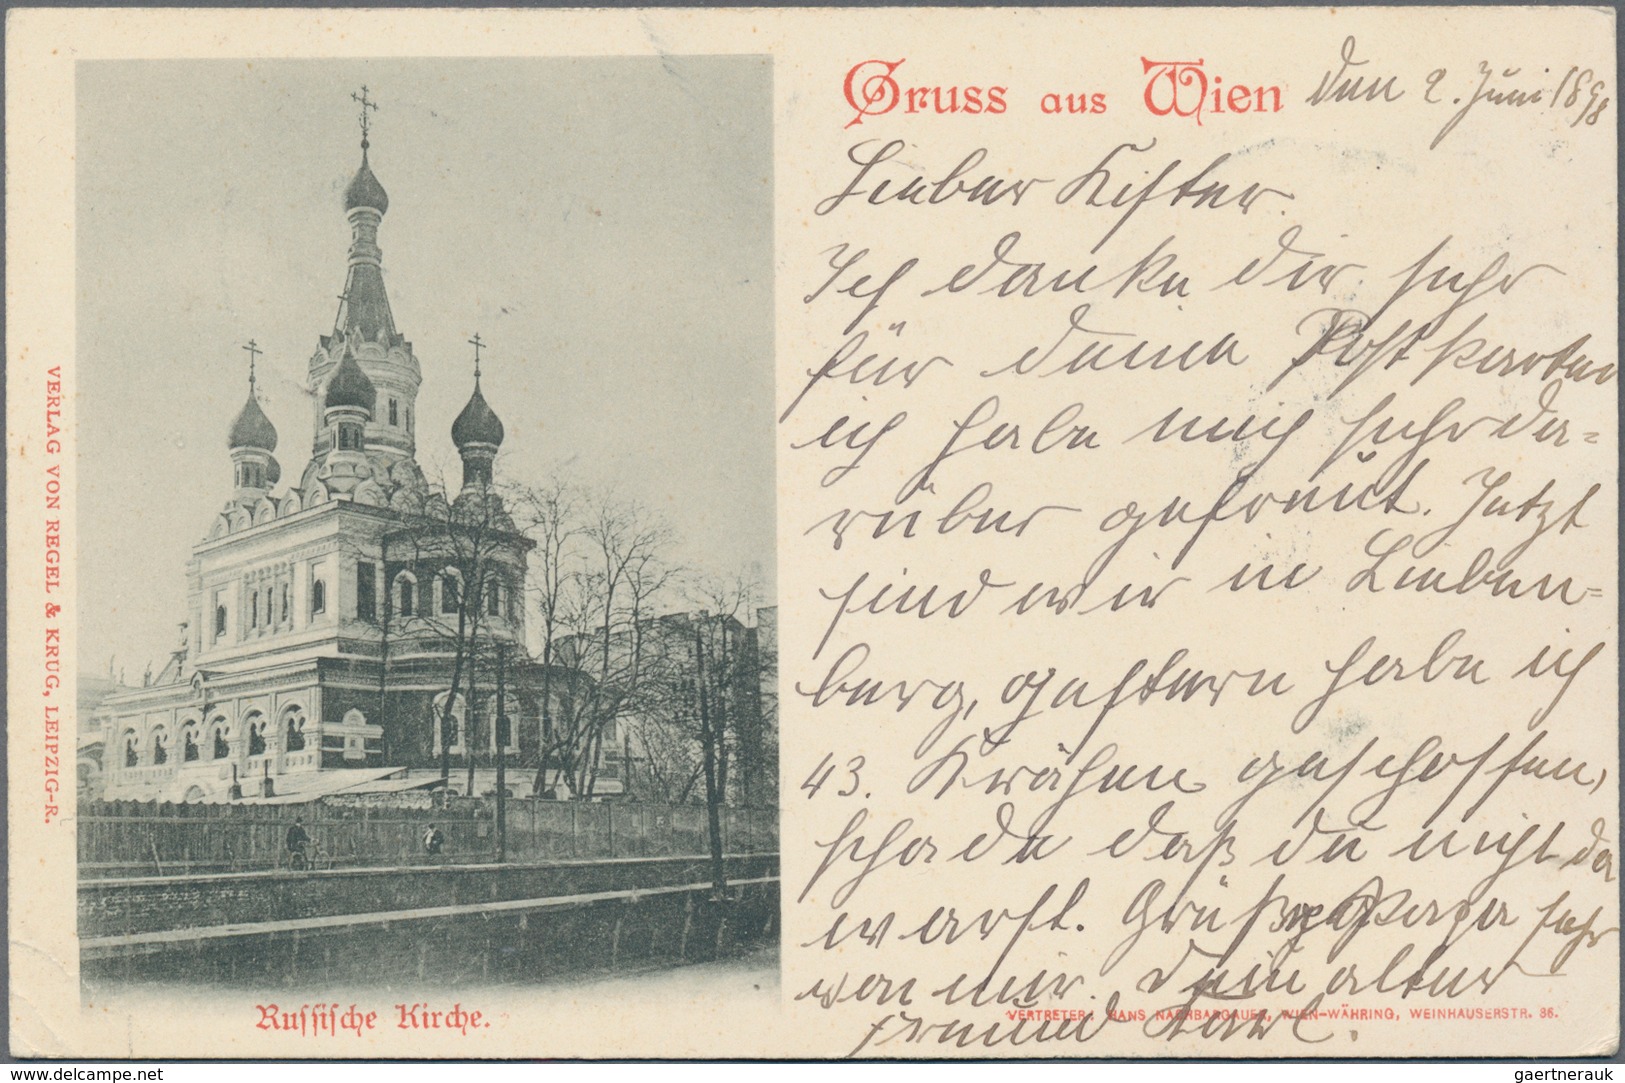 Gruss aus Wien den 2. Juni 1898
Lieber Kister.
Ich danke dir sehr
für deine Postkarten
ich habe mich sehr da=
rüber gefreut. Jetzt
sind wir in Lieben=
berg, gestern habe ich
43. Krähen geschossen,
schade daß du nicht da
warst. Grüße Papa sehr
von mir. Dein alter
Freund Karl.
VERTRETER: HANS NACHBARGAUER, WIEN-WÄHRING, WEINHAUSERSTR. 36.
Russische Kirche.
VERLAG VON REGEL & KRUG, LEIPZIG-R.
www.delcampe.net
gaertnerauk